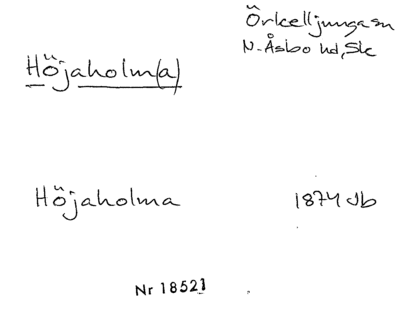 Örkelljunga sn
N. Åsbo hd, Sk
Höjaholm(a)
Höjaholma 1874 Jb
Nr 18521